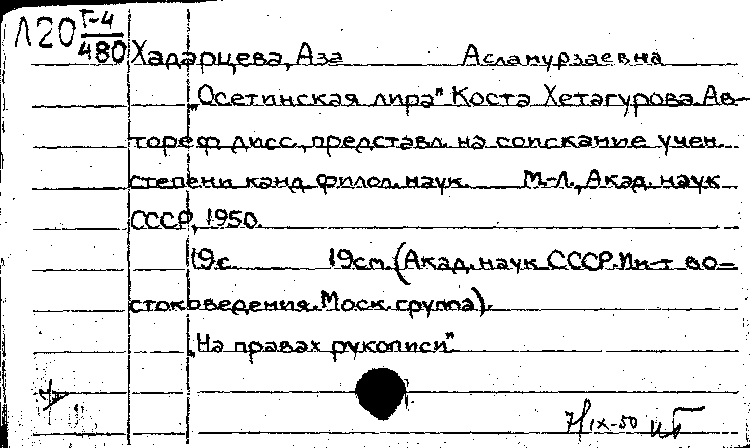 Л20 Г-4/480
Хадарцева, Аза Асламурзаевна
„Осетинская лира" Коста Хетагурова. Ав-
тореф. дисс., представл. на соискание учен.
степени канд. филол. наук. М.-Л., Акад. наук
СССР, 1950.
19с. 19см. (Акад. наук СССР. Ин-т во-
стоковедения. Моск. группа).
„На правах рукописи"
7/IX-50